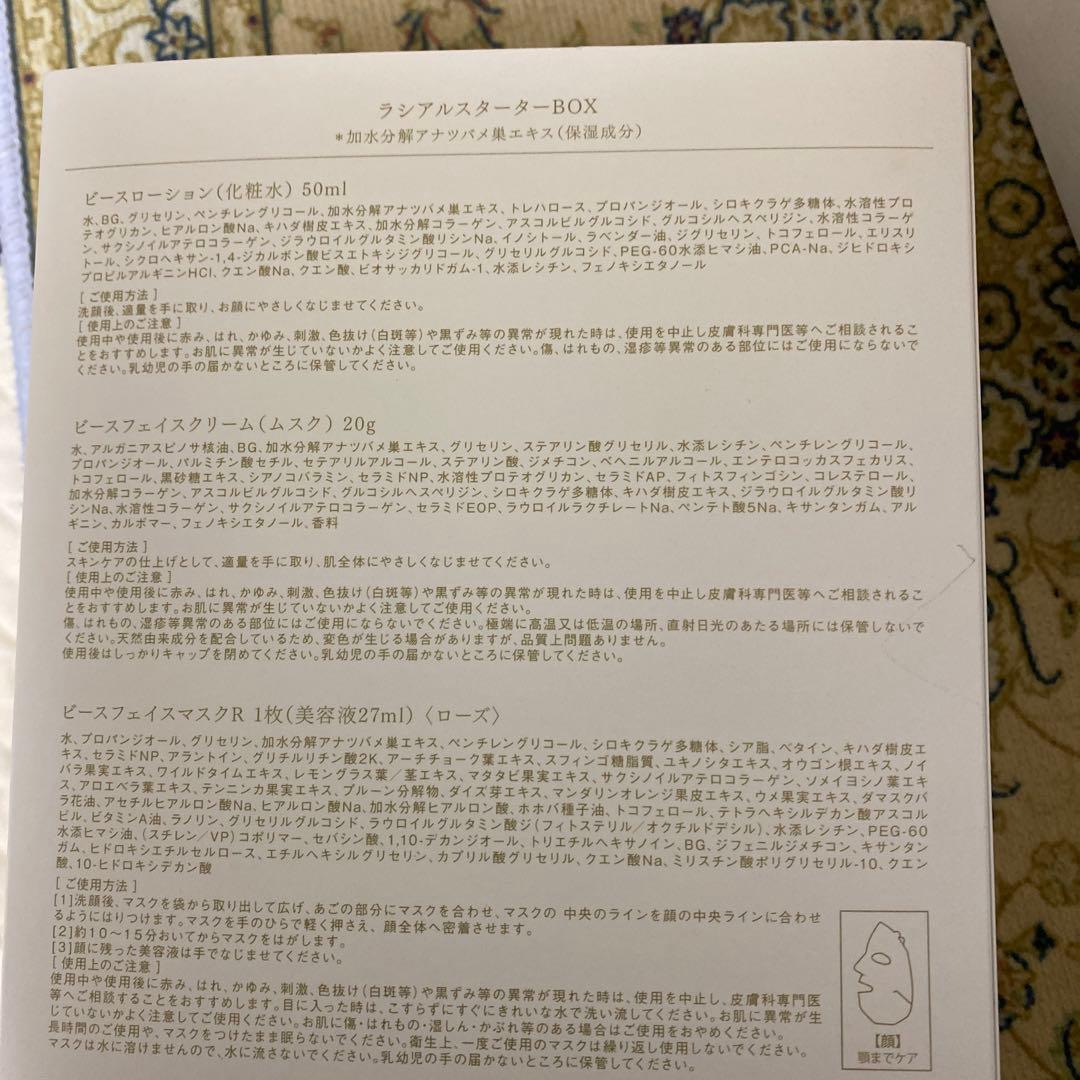 ラシアルスターターBOX
*加水分解アナツバメ巣エキス(保湿成分)
ビースローション(化粧水) 50ml
水、BG、グリセリン、ペンチレングリコール、加水分解アナツバメ巣エキス、トレハロース、プロパンジオール、シロキクラゲ多糖体、水溶性プロ
テオグリカン、ヒアルロン酸Na、キハダ樹皮エキス、加水分解コラーゲン、アスコルビルグルコシド、グルコシルヘスペリジン、水溶性コラーゲ
ン、サクシノイルアテロコラーゲン、ジラウロイルグルタミン酸リシンNa、イノシトール、ラベンダー油、ジグリセリン、トコフェロール、エリスリ
トール、シクロヘキサン-1,4-ジカルボン酸ビスエトキシジグリコール、グリセリルグルコシド、PEG-60水添ヒマシ油、PCA-Na、ジヒドロキシ
プロピルアルギニンHCl、クエン酸Na、クエン酸、ビオサッカリドガム-1、水添レシチン、フェノキシエタノール
[ ご使用方法 ]
洗顔後、適量を手に取り、お顔にやさしくなじませてください。
[ 使用上のご注意 ]
使用中や使用後に赤み、はれ、かゆみ、刺激、色抜け(白斑等)や黒ずみ等の異常が現れた時は、使用を中止し皮膚科専門医等へご相談されるこ
とをおすすめします。お肌に異常が生じていないかよく注意してご使用ください。傷、はれもの、湿疹等異常のある部位にはご使用にならないで
ください。乳幼児の手の届かないところに保管してください。
ビースフェイスクリーム(ムスク) 20g
水、アルガニアスピノサ核油、BG、加水分解アナツバメ巣エキス、グリセリン、ステアリン酸グリセリル、水添レシチン、ペンチレングリコール、
プロパンジオール、パルミチン酸セチル、セテアリルアルコール、ステアリン酸、ジメチコン、ベヘニルアルコール、エンテロコッカスフェカリス、
トコフェロール、黒砂糖エキス、シアノコバラミン、セラミドNP、水溶性プロテオグリカン、セラミドAP、フィトスフィンゴシン、コレステロール、
加水分解コラーゲン、アスコルビルグルコシド、グルコシルヘスペリジン、シロキクラゲ多糖体、キハダ樹皮エキス、ジラウロイルグルタミン酸リ
シンNa、水溶性コラーゲン、サクシノイルアテロコラーゲン、セラミドEOP、ラウロイルラクチレートNa、ペンテト酸5Na、キサンタンガム、アル
ギニン、カルボマー、フェノキシエタノール、香料
[ ご使用方法 ]
スキンケアの仕上げとして、適量を手に取り、肌全体にやさしくなじませてください。
[ 使用上のご注意 ]
使用中や使用後に赤み、はれ、かゆみ、刺激、色抜け(白斑等)や黒ずみ等の異常が現れた時は、使用を中止し皮膚科専門医等へご相談されるこ
とをおすすめします。お肌に異常が生じていないかよく注意してご使用ください。
傷、はれもの、湿疹等異常のある部位にはご使用にならないでください。極端に高温又は低温の場所、直射日光のあたる場所には保管しないで
ください。天然由来成分を配合しているため、変色が生じる場合がありますが、品質上問題ありません。
使用後はしっかりキャップを閉めてください。乳幼児の手の届かないところに保管してください。
ビースフェイスマスクR 1枚(美容液27ml)〈ローズ〉
水、プロパンジオール、グリセリン、加水分解アナツバメ巣エキス、ペンチレングリコール、シロキクラゲ多糖体、シア脂、ベタイン、キハダ樹皮エ
キス、セラミドNP、アラントイン、グリチルリチン酸2K、アーチチョーク葉エキス、スフィンゴ糖脂質、ユキノシタエキス、オウゴン根エキス、ノイ
バラ果実エキス、ワイルドタイムエキス、レモングラス葉/茎エキス、マタタビ果実エキス、サクシノイルアテロコラーゲン、ソメイヨシノ葉エキ
ス、アロエベラ葉エキス、テンニンカ果実エキス、プルーン分解物、ダイズ芽エキス、マンダリンオレンジ果皮エキス、ウメ果実エキス、ダマスクバ
ラ花油、アセチルヒアルロン酸Na、ヒアルロン酸Na、加水分解ヒアルロン酸、ホホバ種子油、トコフェロール、テトラヘキシルデカン酸アスコル
ビル、ビタミンA油、ラノリン、グリセリルグルコシド、ラウロイルグルタミン酸ジ(フィトステリル/オクチルドデシル)、水添レシチン、PEG-60
水添ヒマシ油、(スチレン/VP)コポリマー、セバシン酸、1,10-デカンジオール、トリエチルヘキサノイン、BG、ジフェニルジメチコン、キサンタン
ガム、ヒドロキシエチルセルロース、エチルヘキシルグリセリン、カプリル酸グリセリル、クエン酸Na、ミリスチン酸ポリグリセリル-10、クエン
酸、10-ヒドロキシデカン酸
[ ご使用方法 ]
[1]洗顔後、マスクを袋から取り出して広げ、あごの部分にマスクを合わせ、マスクの 中央のラインを顔の中央ラインに合わせ
るようにはりつけます。マスクを手のひらで軽く押さえ、顔全体へ密着させます。
[2]約10〜15分おいてからマスクをはがします。
[3]顔に残った美容液は手でなじませてください。
[ 使用上のご注意 ]
使用中や使用後に赤み、はれ、かゆみ、刺激、色抜け(白斑等)や黒ずみ等の異常が現れた時は、使用を中止し、皮膚科専門医
等へご相談することをおすすめします。目に入った時は、こすらずにすぐにきれいな水で洗い流してください。お肌に異常が生
じていないかよく注意してご使用ください。お肌に傷・はれもの・湿しん・かぶれ等のある場合はご使用をおやめください。
長時間のご使用や、マスクをつけたまま眠らないでください。衛生上、一度ご使用のマスクは繰り返し使用しないでください。
マスクは水に溶けませんので、水に流さないでください。乳幼児の手の届かないところに保管してください。
【顔】
顎までケア